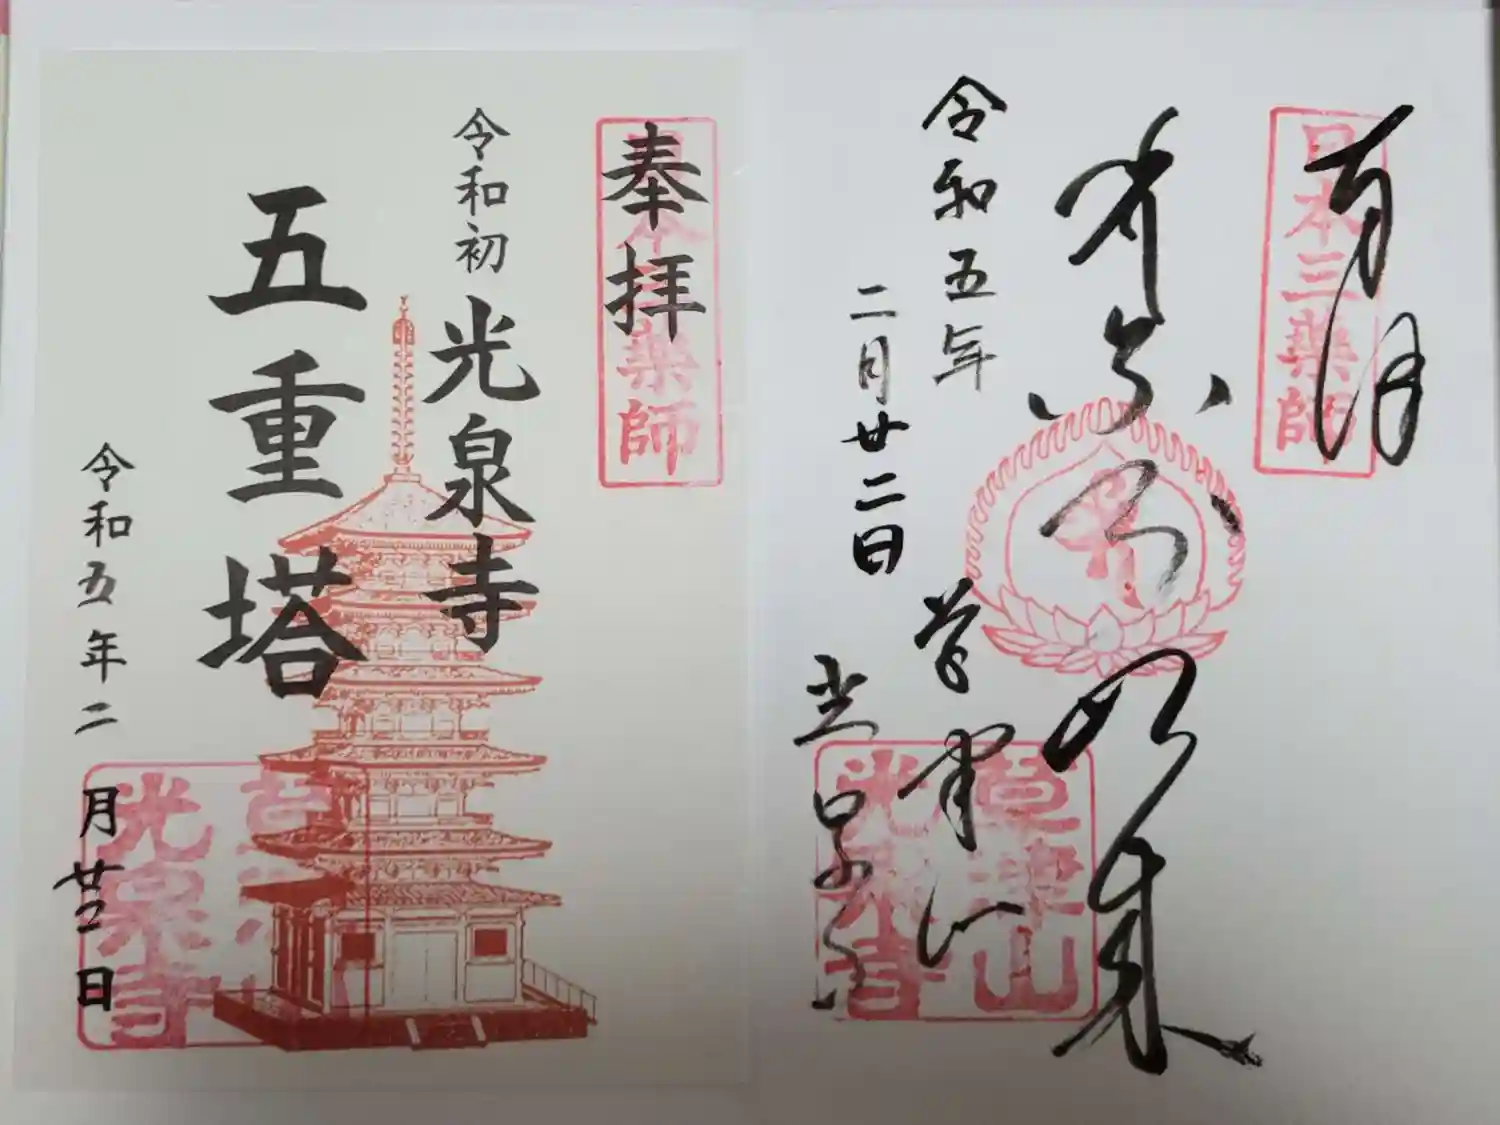 奉拝
日本三薬師
令和初 光泉寺
五重塔
令和五年二月廿二日
草津山
光泉寺
日本三薬師
如来
令和五年
二月廿二日
草津山
光泉寺
草津山
光泉寺